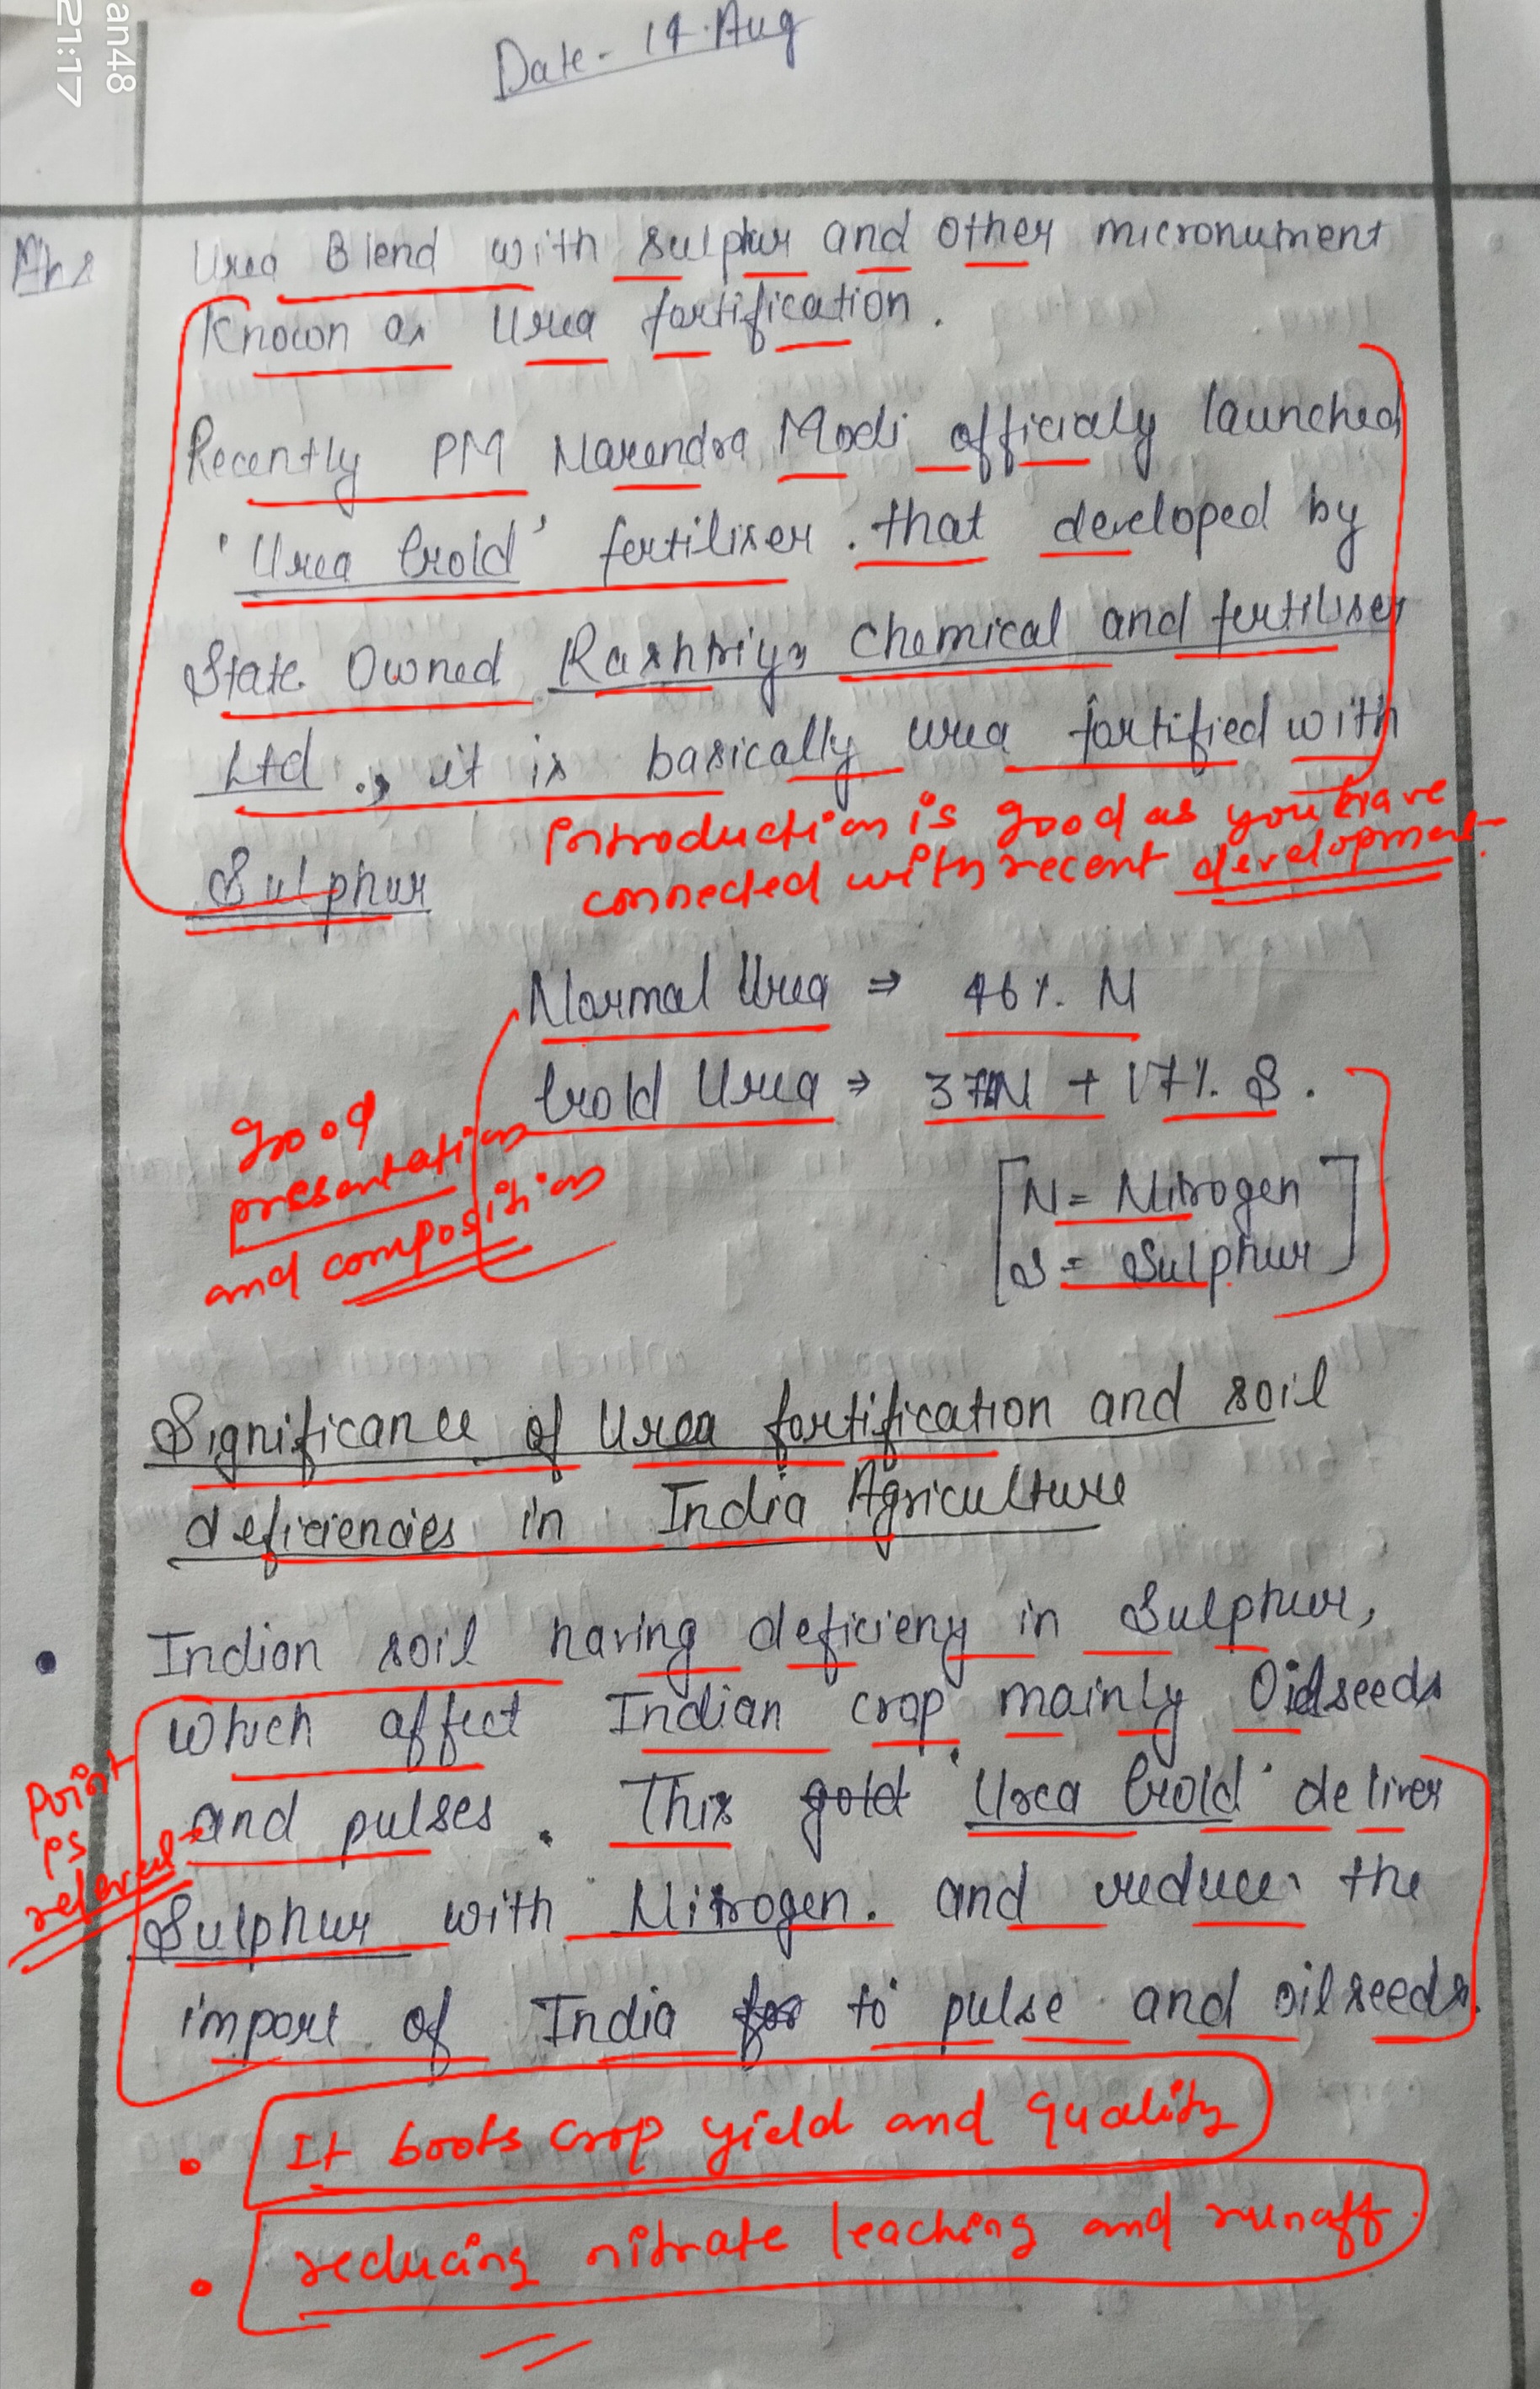 an48
21:17
Date - 14 Aug
Ans Urea Blend with sulphur and other micronument
Known as Urea fortification.
Recently PM Narendra Modi officialy launched
'Urea Gold' fertiliser. that developed by
State Owned Rashtriya Chemical and fertiliser
Ltd., it is basically urea fortified with
Sulphur
Introduction is good as you have
connected with recent development.
Normal Urea ⇒ 46% N
Gold Urea ⇒ 37%N + 17% S.
Good
presentation
and composition
[N = Nitrogen
S = Sulphur]
Significance of Urea fortification and soil
deficiencies in India Agriculture
• Indian soil having deficieny in Sulphur,
which affect Indian crop mainly Oilseeds
and pulses. This gold 'Urea Gold' deliver
Point
is
relevant
Sulphur with Nitrogen. and reduce the
import of India for to pulse and oilseeds.
• It boots crop yield and quality
• reducing nitrate leaching and runoff.